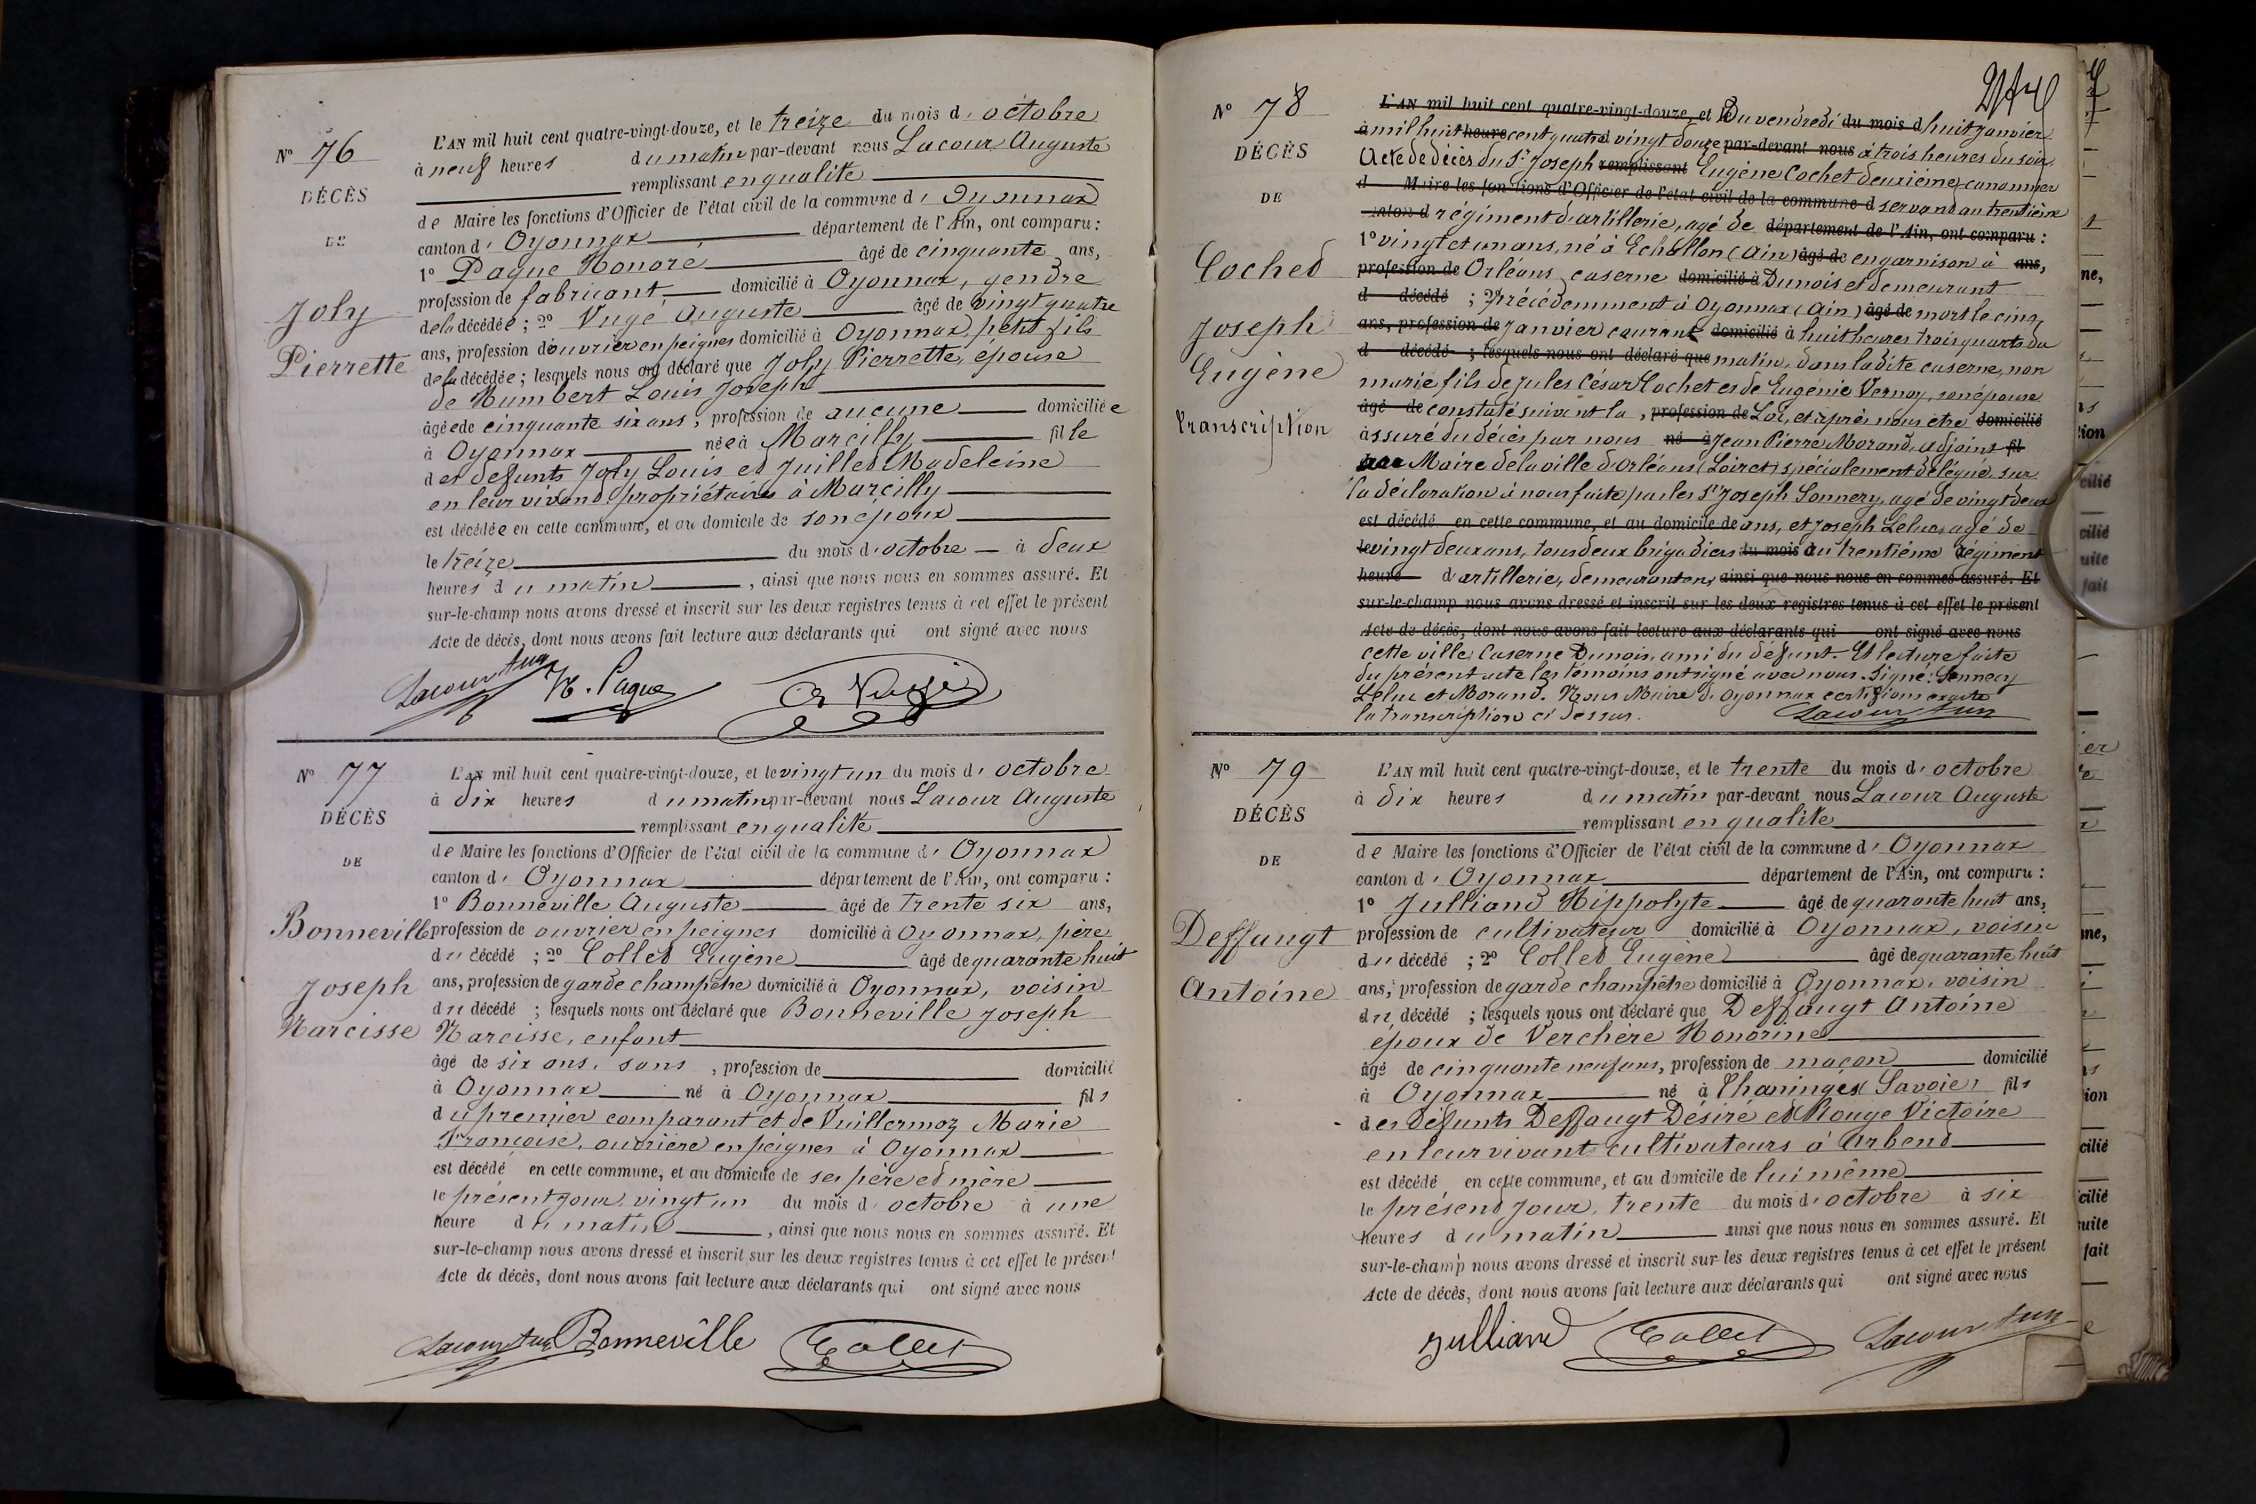 N° 76
DÉCÈS
DE
Joly
Pierrette
L'AN mil huit cent quatre-vingt-douze, et le treize du mois d'octobre
à neuf heures du matin par-devant nous Lacour Auguste
remplissant en qualité
de Maire les fonctions d'Officier de l'état civil de la commune d'Oyonnax
canton d'Oyonnax département de l'Ain, ont comparu :
1° Pague Honoré âgé de cinquante ans,
profession de fabricant, domicilié à Oyonnax, gendre
de la décédée ; 2° Vugé Auguste âgé de vingt quatre
ans, profession d'ouvrier en peignes domicilié à Oyonnax, petit fils
de la décédée ; lesquels nous ont déclaré que Joly Pierrette, épouse
de Humbert Louis Joseph
âgée de cinquante six ans, profession de aucune domiciliée
à Oyonnax née à Marcilly, fille
d et défunts Joly Louis et Juillet Madeleine
en leur vivant propriétaires à Marcilly
est décédée en cette commune, et au domicile de son époux
le treize du mois d'octobre à deux
heures du matin, ainsi que nous nous en sommes assuré. Et
sur-le-champ nous avons dressé et inscrit sur les deux registres tenus à cet effet le présent
Acte de décès, dont nous avons fait lecture aux déclarants qui ont signé avec nous
Lacour Aug H. Pague
N° 77
DÉCÈS
DE
Bonneville
Joseph
Narcisse
L'AN mil huit cent quatre-vingt-douze, et le vingt un du mois d'octobre
à dix heures du matin par-devant nous Lacour Auguste
remplissant en qualité
de Maire les fonctions d'Officier de l'état civil de la commune d'Oyonnax
canton d'Oyonnax département de l'Ain, ont comparu :
1° Bonneville Auguste âgé de trente six ans,
profession de ouvrier en peignes domicilié à Oyonnax, père
du décédé ; 2° Collet Eugène âgé de quarante huit
ans, profession de garde champêtre domicilié à Oyonnax, voisin
du décédé ; lesquels nous ont déclaré que Bonneville Joseph
Narcisse, enfant
âgé de six ans, sans, profession de domicilié
à Oyonnax né à Oyonnax fils
du premier comparant et de Vuillermoz Marie
Françoise, ouvrière en peignes à Oyonnax
est décédé en cette commune, et au domicile de ses père et mère
le présent jour, vingt un du mois d'octobre à une
heure du matin, ainsi que nous nous en sommes assuré. Et
sur-le-champ nous avons dressé et inscrit sur les deux registres tenus à cet effet le présent
Acte de décès, dont nous avons fait lecture aux déclarants qui ont signé avec nous
Lacour Aug Bonneville Collet
N° 78
DÉCÈS
DE
Cochet
Joseph
Eugène
transcription
L'AN mil huit cent quatre-vingt-douze, et le Du vendredi du mois d huit janvier
à mil huit heure cent quatre d vingt douze par-devant nous à trois heures du soir
Acte de décès du Sr Joseph remplissant Eugène Cochet deuxième canonnier
d Maire les fonctions d'Officier de l'état civil de la commune d servant au trentième
canton d régiment d'artillerie, agé de département de l'Ain, ont comparu :
1° vingt et un ans, né à Echallon (Ain) âgé de en garnison à ans,
profession de Orléans caserne domicilié à Dunois et demeurant
d décédé ; 2° précédemment à Oyonnax (Ain) âgé de mort le cinq
ans, profession de janvier courant domicilié à huit heures trois quarts du
d décédé ; lesquels nous ont déclaré que matin, dans ladite caserne, non
marié fils de Jules César Cochet et de Eugénie Vernoy, son épouse
âgé de constaté suivant la, profession de Loi, et après nous être domicilié
à assuré du décès par nous né à Jean Pierre Morand, adjoint fil
Maire de la ville d'Orléans (Loiret) spécialement délégué, sur
la déclaration à nous faite par les Srs Joseph Sonnery, agé de vingt deux
est décédé en cette commune, et au domicile de ans, et Joseph Leluc, agé de
le vingt deux ans, tous deux brigadiers du mois au trentième régiment
heure d'artillerie, demeurant en ainsi que nous nous en sommes assuré. Et
sur-le-champ nous avons dressé et inscrit sur les deux registres tenus à cet effet le présent
Acte de décès, dont nous avons fait lecture aux déclarants qui ont signé avec nous
cette ville, Caserne Dunois, ami du défunt. Et lecture faite
du présent acte les témoins ont signé avec nous. Signé : Sonnery
Leluc et Morand. Nous Maire d'Oyonnax certifions exacte
la transcription ci dessus. Lacour Aug
N° 79
DÉCÈS
DE
Deffaugt
Antoine
L'AN mil huit cent quatre-vingt-douze, et le trente du mois d'octobre
à dix heures du matin par-devant nous Lacour Auguste
remplissant en qualité
de Maire les fonctions d'Officier de l'état civil de la commune d'Oyonnax
canton d'Oyonnax département de l'Ain, ont comparu :
1° Julliand Hippolyte âgé de quarante huit ans,
profession de cultivateur domicilié à Oyonnax, voisin
du décédé ; 2° Collet Eugène âgé de quarante huit
ans, profession de garde champêtre domicilié à Oyonnax, voisin
du décédé ; lesquels nous ont déclaré que Deffaugt Antoine
époux de Verchère Honorine
âgé de cinquante neuf ans, profession de maçon domicilié
à Oyonnax né à Thaninges (Savoie) fils
des défunts Deffaugt Désiré et Rouge Victoire
en leur vivant cultivateurs à Arbent
est décédé en cette commune, et au domicile de lui même
le présent jour, trente du mois d'octobre à six
heures du matin ainsi que nous nous en sommes assuré. Et
sur-le-champ nous avons dressé et inscrit sur les deux registres tenus à cet effet le présent
Acte de décès, dont nous avons fait lecture aux déclarants qui ont signé avec nous
Julliand Collet Lacour Aug